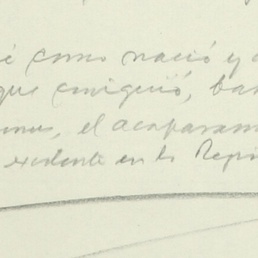 é como nació y
que consiguió, ba
el acaparam
existente en la Repú